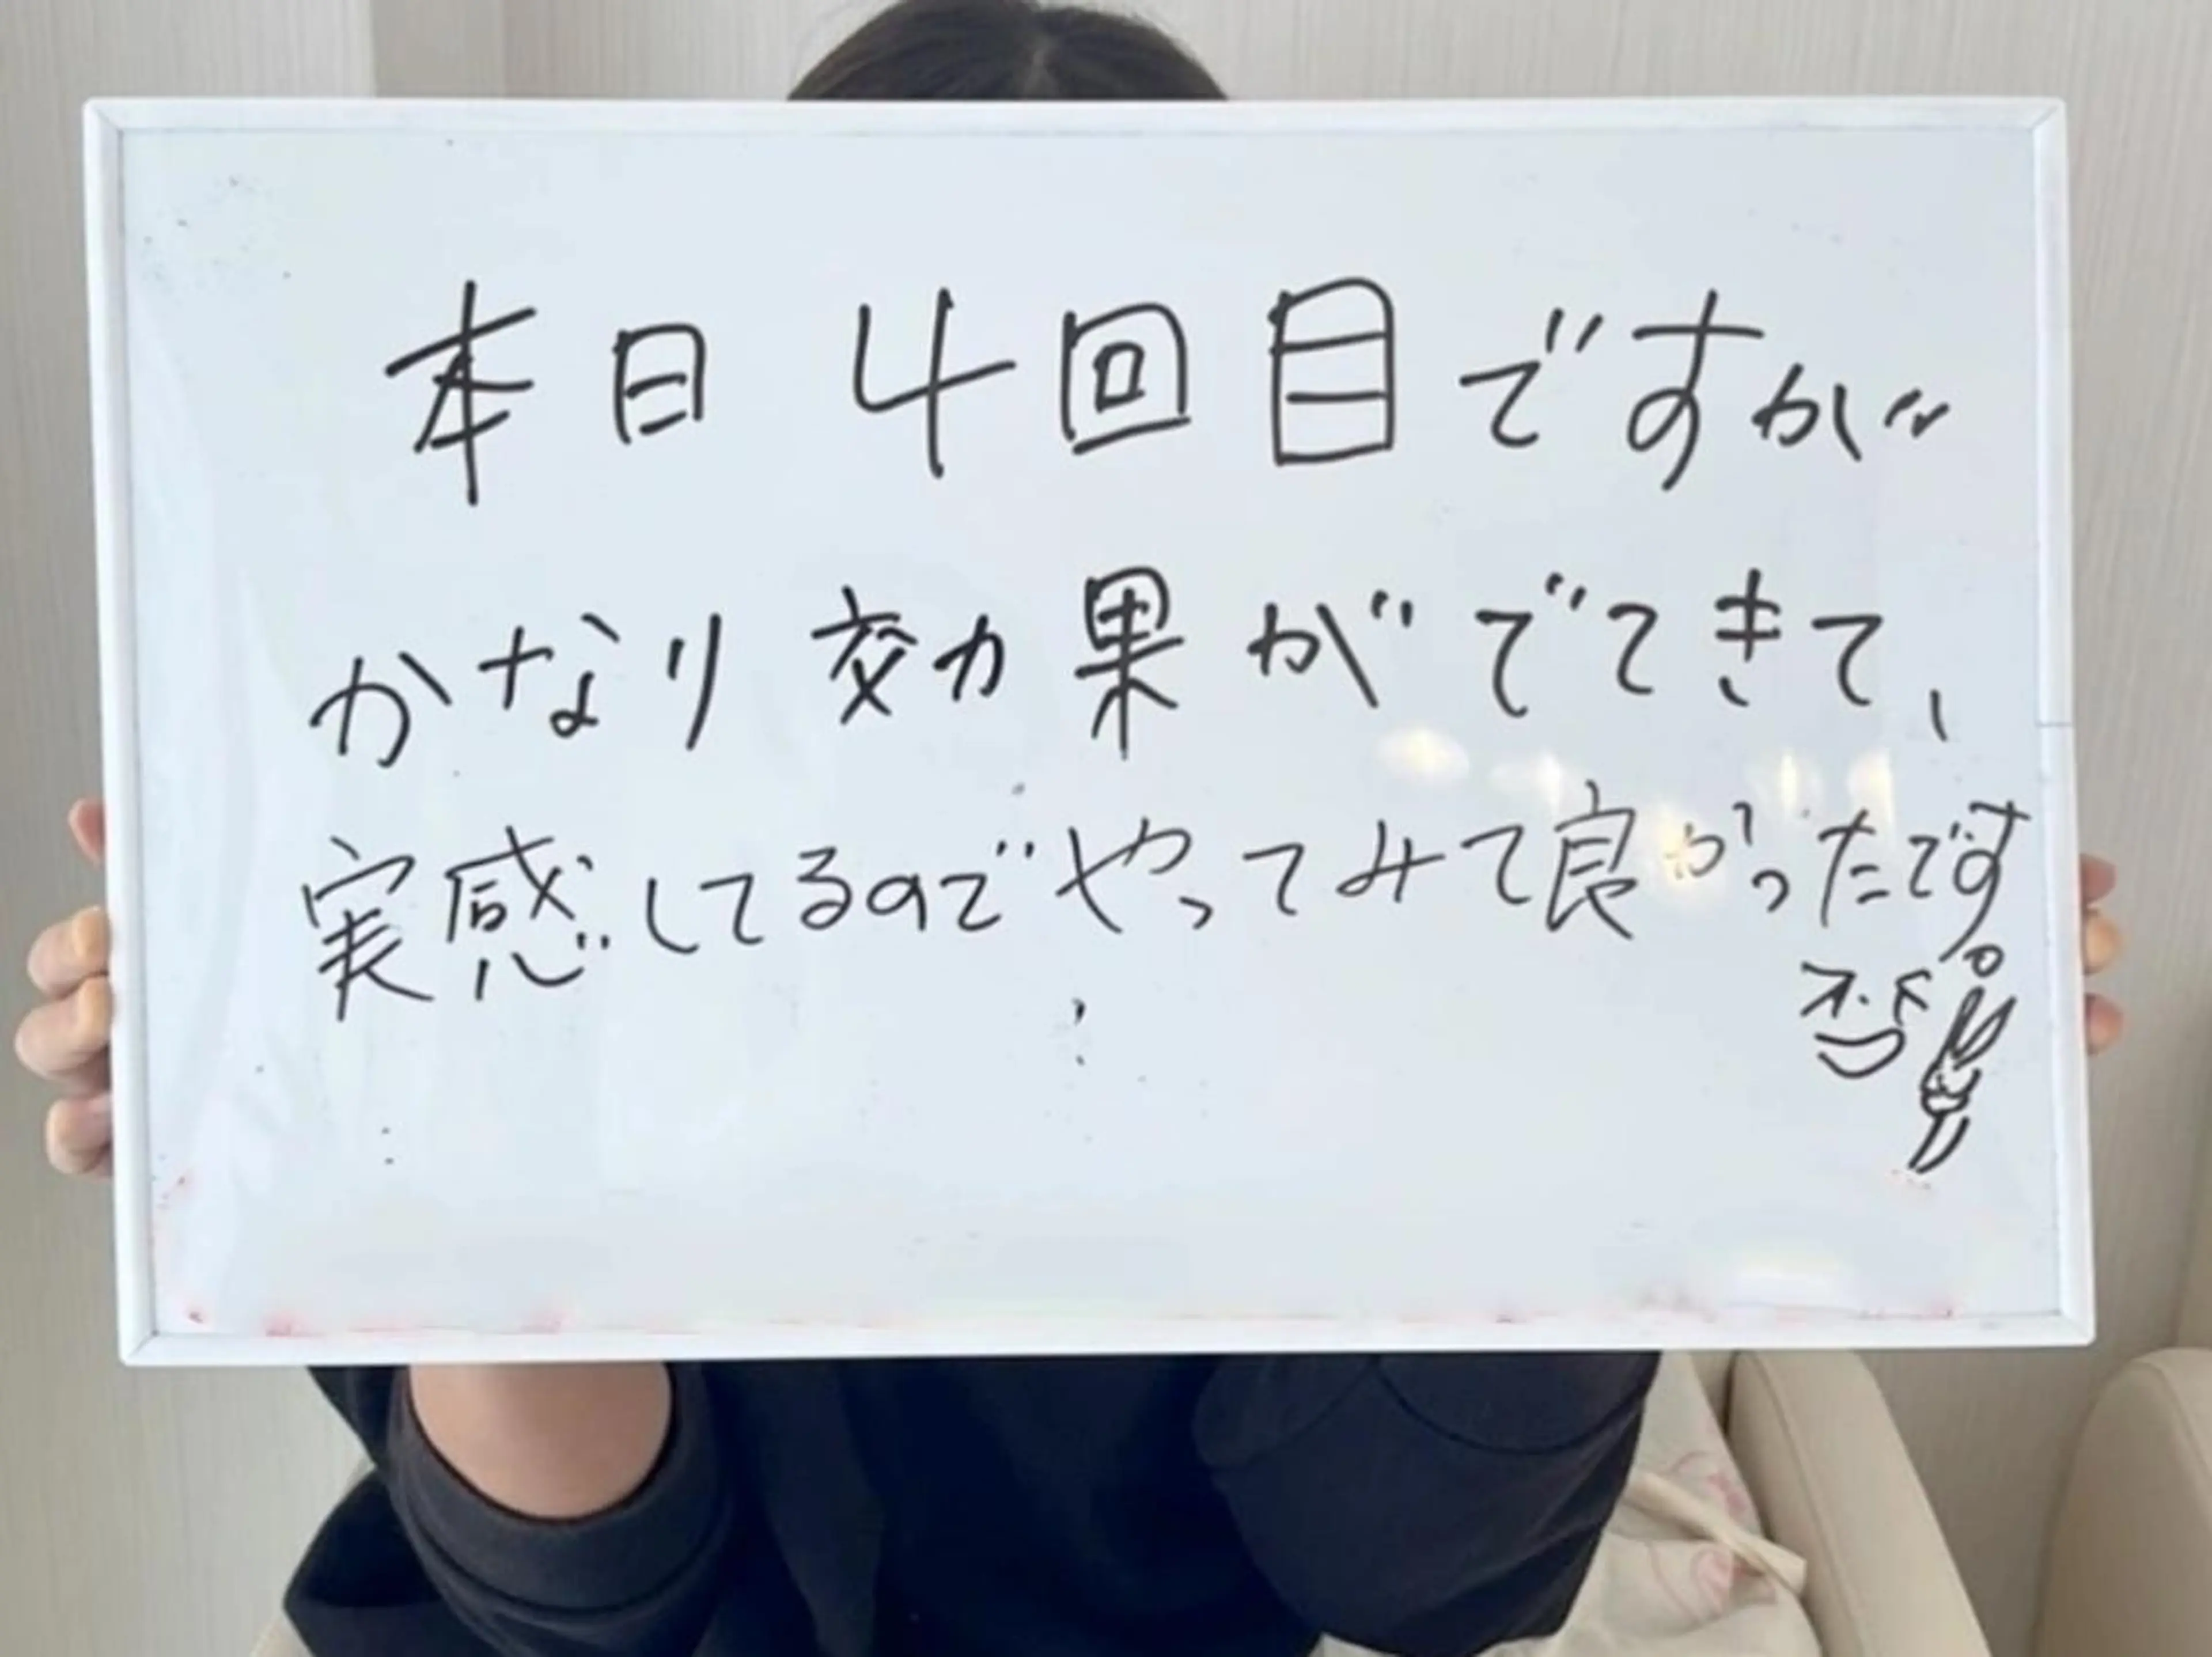 本日 4回目ですが
かなり効果がでてきて、
実感してるのでやってみて良かったです。